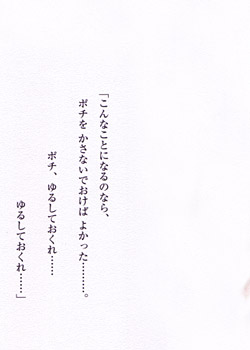 「こんなことになるのなら、
ポチを かさないでおけば よかった………。
ポチ、ゆるしておくれ……
ゆるしておくれ……」